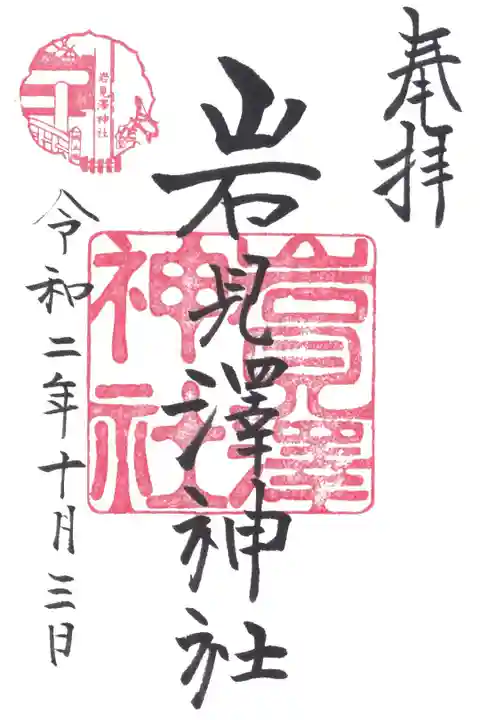 奉拝
岩見澤神社
岩見澤
神社
令和二年十月三日
岩見澤神社